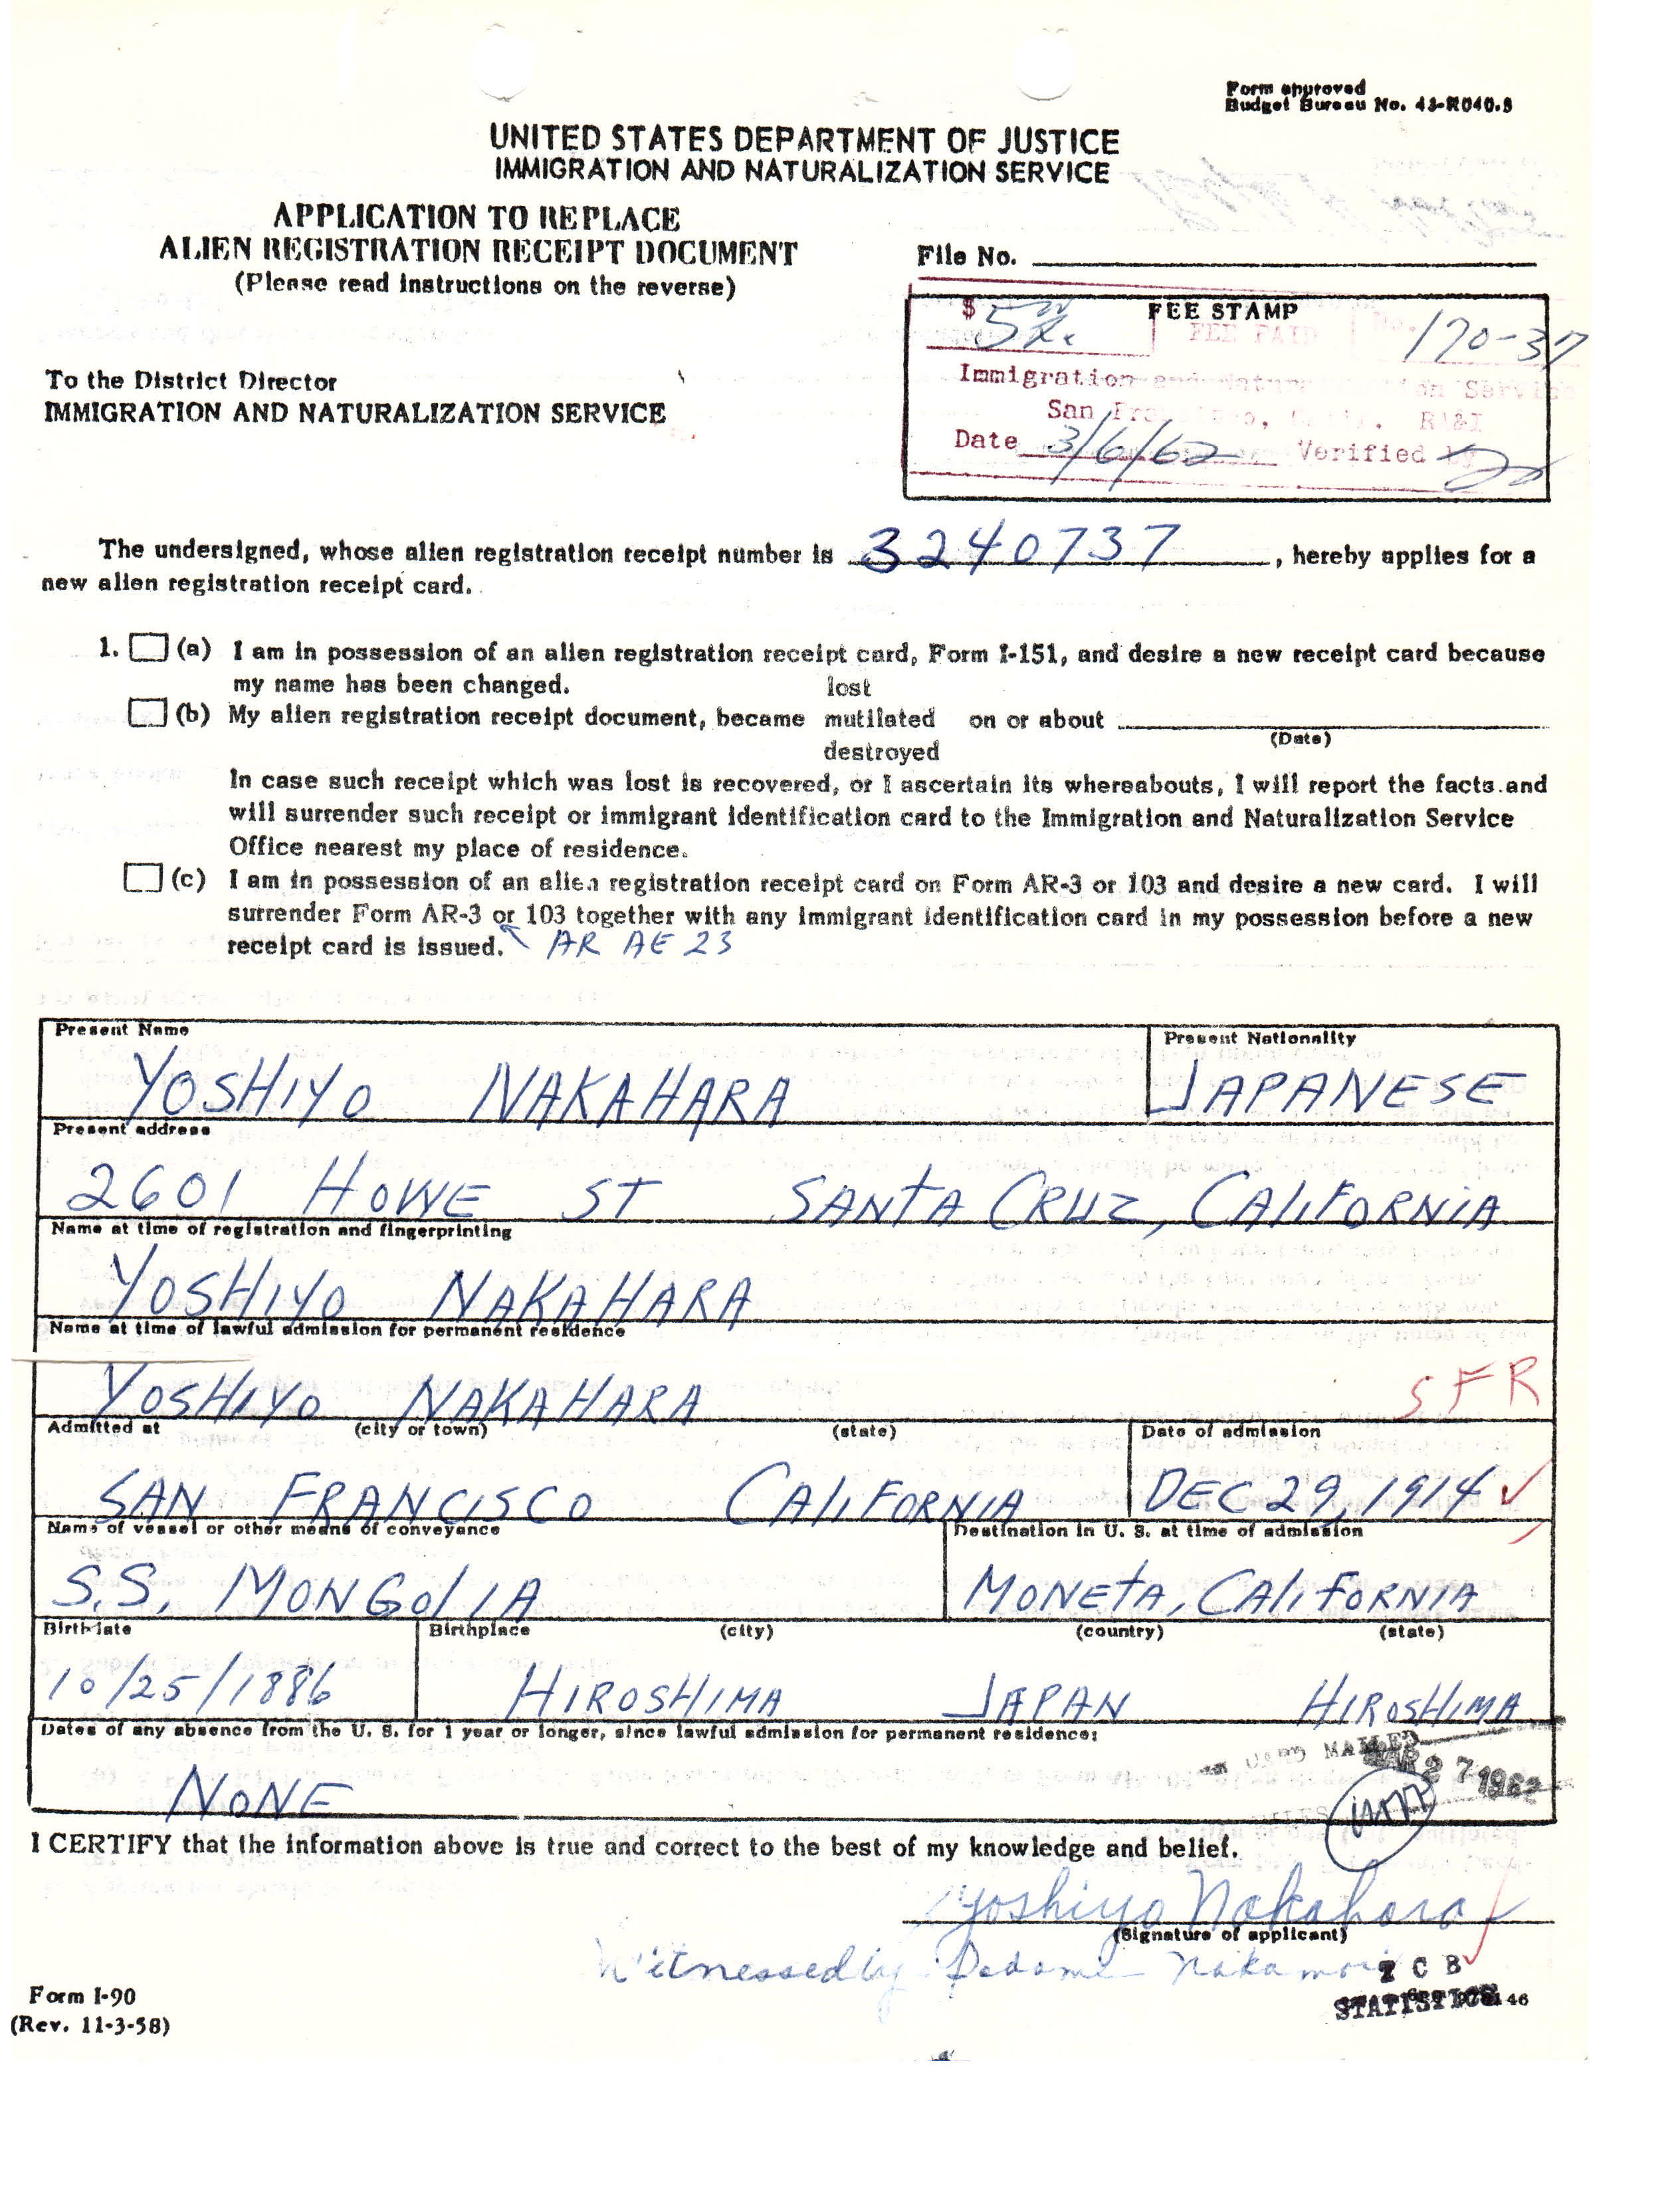 Form approved
Budget Bureau No. 43-R040.5
UNITED STATES DEPARTMENT OF JUSTICE
IMMIGRATION AND NATURALIZATION SERVICE
APPLICATION TO REPLACE
ALIEN REGISTRATION RECEIPT DOCUMENT
(Please read instructions on the reverse)
File No.
FEE STAMP
$ 5 FEE PAID No. 170-37
Immigration and Naturalization Service
San Francisco, Calif. R&I
Date 3/6/62 Verified by
To the District Director
IMMIGRATION AND NATURALIZATION SERVICE
The undersigned, whose alien registration receipt number is 3240737, hereby applies for a
new alien registration receipt card.
1. (a) I am in possession of an alien registration receipt card, Form I-151, and desire a new receipt card because
my name has been changed.
lost
(b) My alien registration receipt document, became mutilated on or about
(Date)
destroyed
In case such receipt which was lost is recovered, or I ascertain its whereabouts, I will report the facts and
will surrender such receipt or immigrant identification card to the Immigration and Naturalization Service
Office nearest my place of residence.
(c) I am in possession of an alien registration receipt card on Form AR-3 or 103 and desire a new card. I will
surrender Form AR-3 or 103 together with any immigrant identification card in my possession before a new
receipt card is issued. AR AE 23
Present Name Present Nationality
YOSHIYO NAKAHARA JAPANESE
Present address
2601 HOWE ST SANTA CRUZ, CALIFORNIA
Name at time of registration and fingerprinting
YOSHIYO NAKAHARA
Name at time of lawful admission for permanent residence
YOSHIYO NAKAHARA SFR
Admitted at (city or town) (state) Date of admission
SAN FRANCISCO CALIFORNIA DEC 29, 1914
Name of vessel or other means of conveyance Destination in U. S. at time of admission
S.S. MONGOLIA MONETA, CALIFORNIA
Birthdate Birthplace (city) (country) (state)
10/25/1886 HIROSHIMA JAPAN HIROSHIMA
Dates of any absence from the U. S. for 1 year or longer, since lawful admission for permanent residence:
CARD MAILED MAR 27 1962
NONE
I CERTIFY that the information above is true and correct to the best of my knowledge and belief.
Yoshiyo Nakahara
(Signature of applicant)
Witnessed by
C B
STATISTICS
Form I-90
(Rev. 11-3-58)